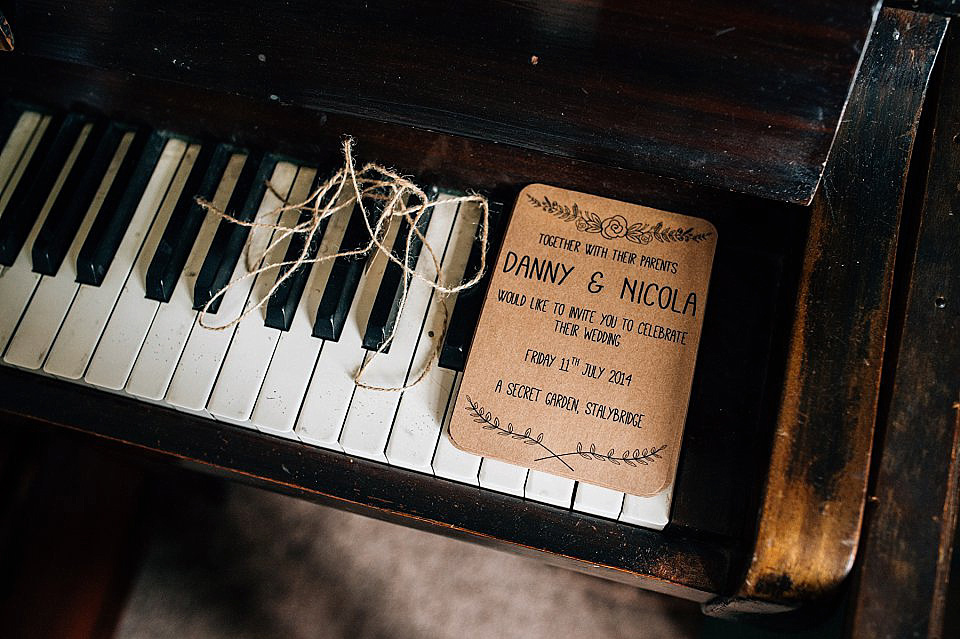 TOGETHER WITH THEIR PARENTS
DANNY & NICOLA
WOULD LIKE TO INVITE YOU TO CELEBRATE
THEIR WEDDING
FRIDAY 11TH JULY 2014
A SECRET GARDEN, STALYBRIDGE